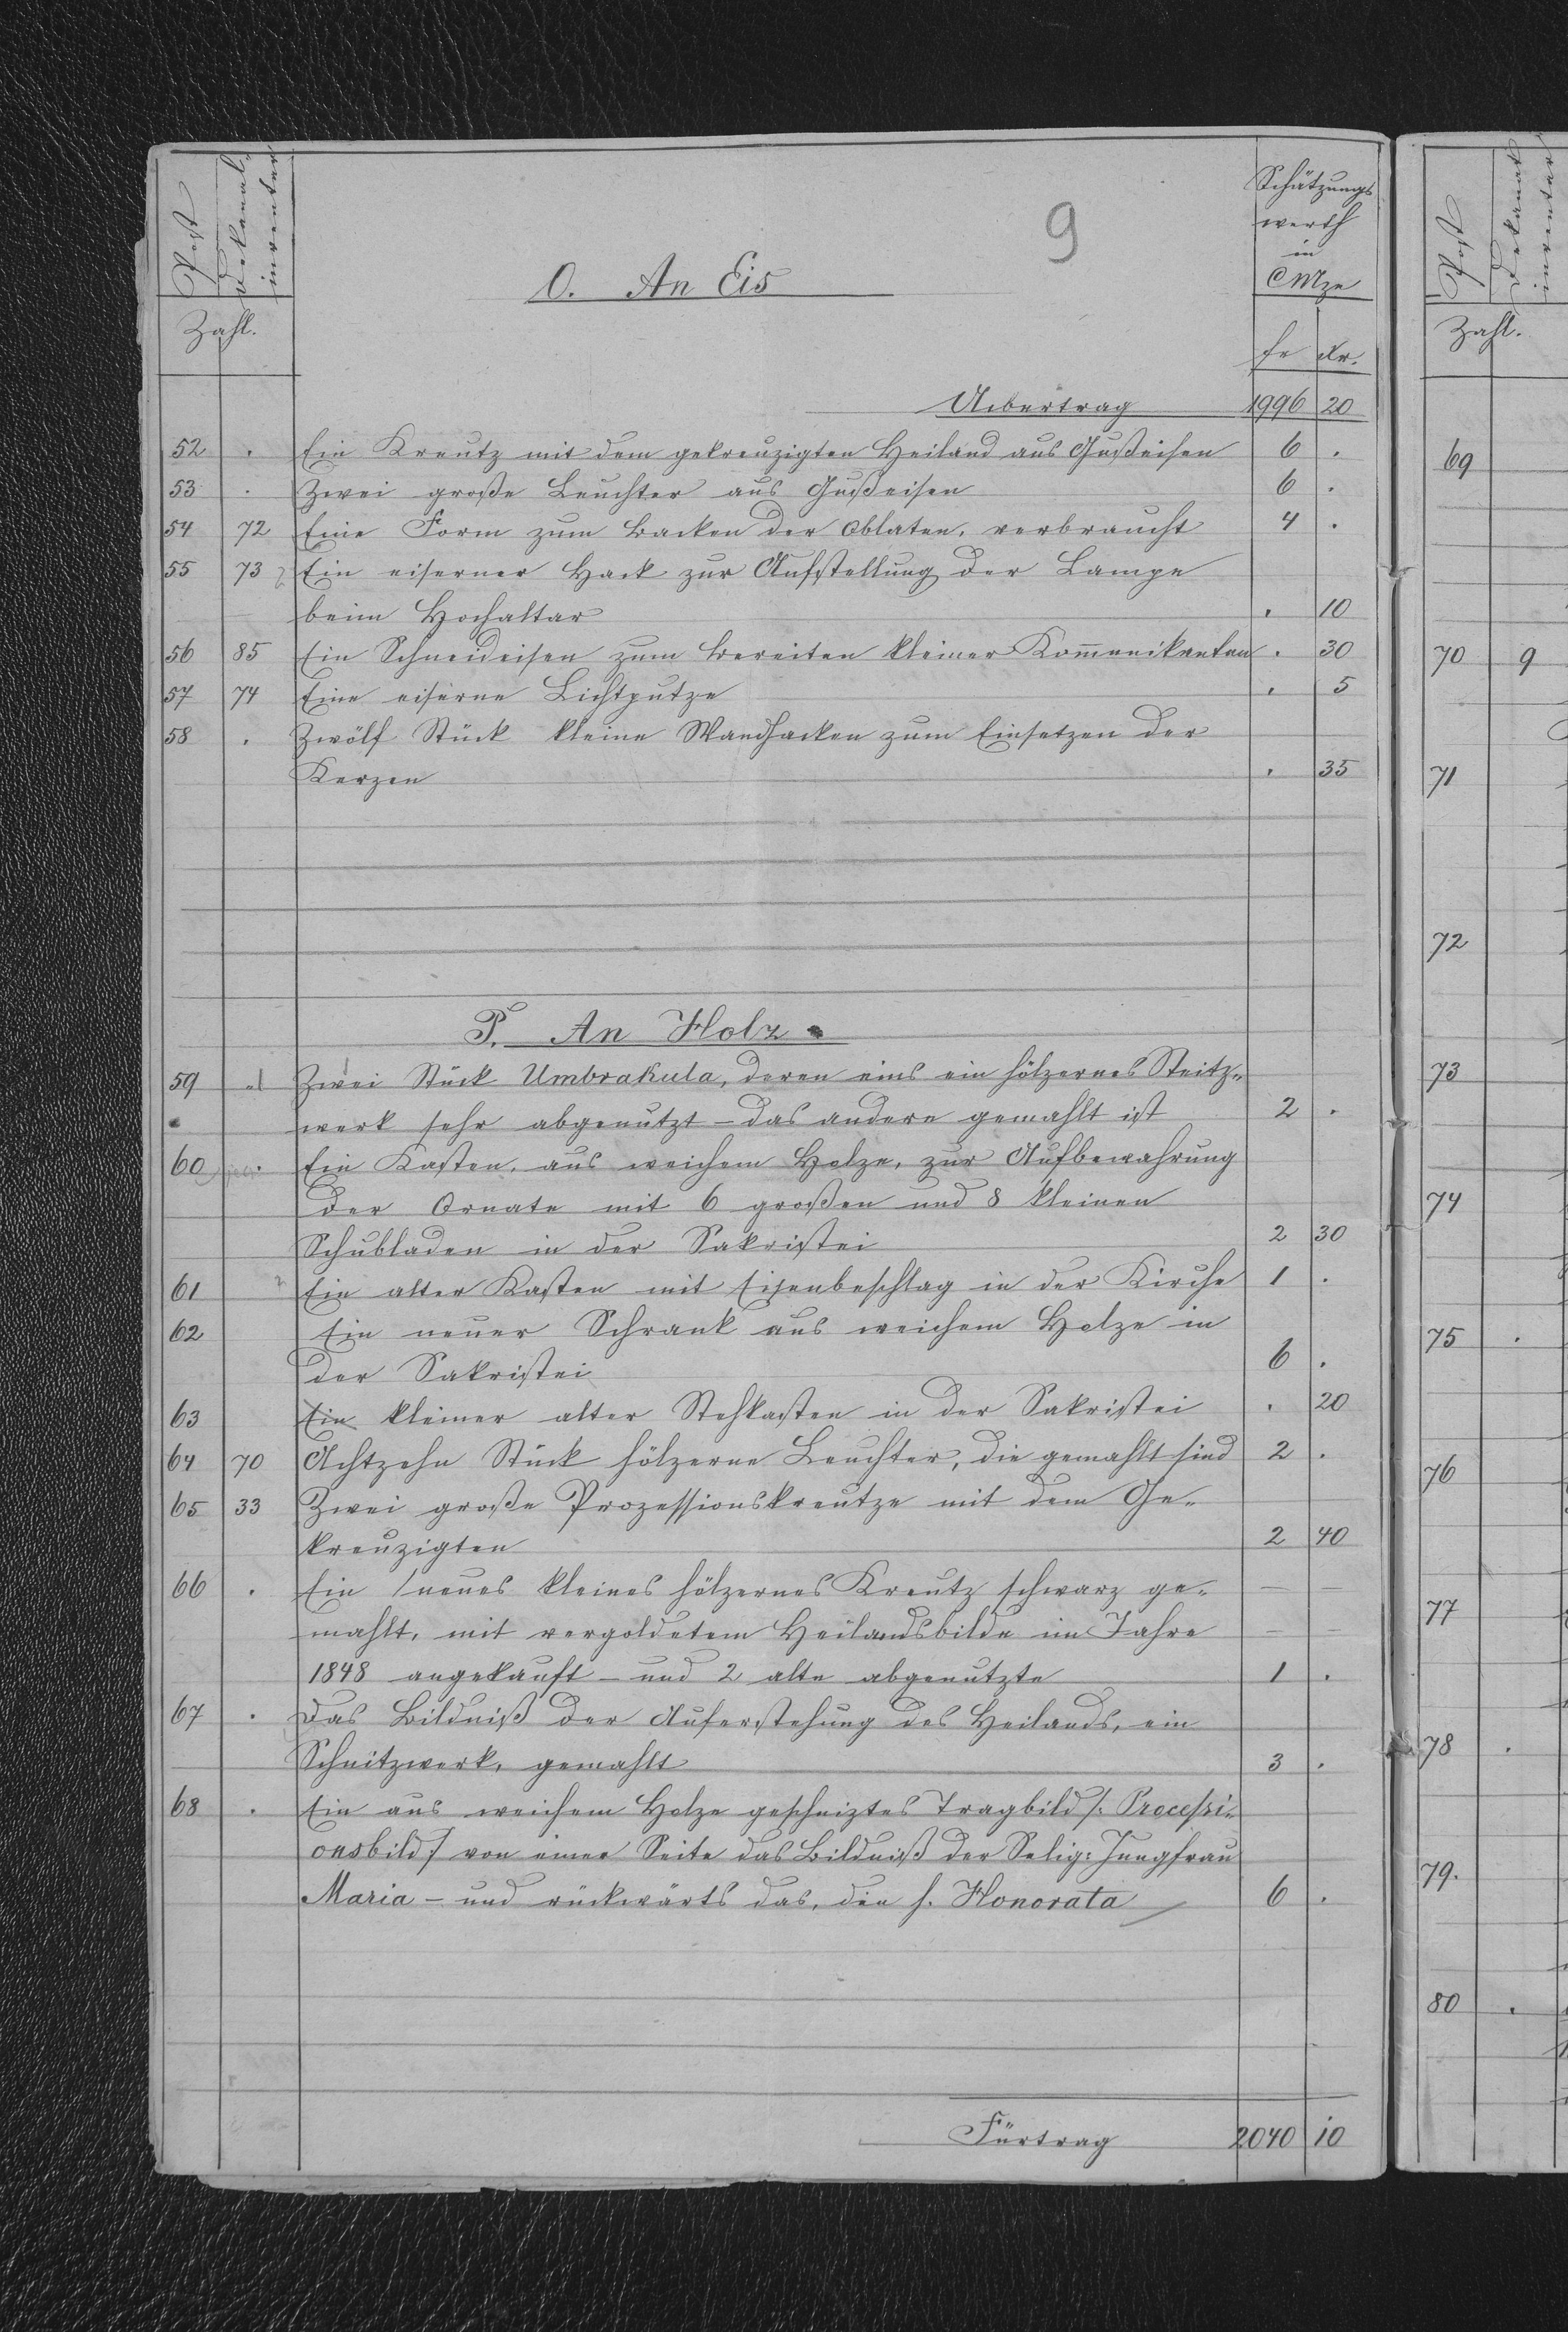 9
Post
Dekanal-
inventar
Zahl.
O. An Eis
Schätzungs
werth
in
CMze
fr xr.
Uebertrag 1996 20
52 . Ein Kreutz mit dem gekreuzigten Heiland aus Gußeisen 6 .
53 . Zwei große Leuchter aus Gußeisen 6 .
54 72 Eine Form zum backen der Oblaten, verbraucht 4 .
55 73 Ein eiserner Hack zur Aufstellung der Lampe
beim Hochaltar . 10
56 85 Ein Schneideisen zum bereiten kleiner Kom̄unikanten . 30
57 74 Eine eiserne Lichtputze . 5
58 . Zwölf Stück kleine Wandhacken zum Einsetzen der
Kerzen . 35
P. An Holz
59 Zwei Stück Umbrakula, deren eins ein hölzernes
werk sehr abgenutzt – das andere gemahlt ist 2 .
60 . Ein Kasten, aus weichem Holze, zur Aufbewahrung
der Ornate mit 6 großen und 8 kleinen
Schubladen in der Sakristei 2 30
61 Ein alter Kasten mit Eisenbeschlag in der Kirche 1 .
62 Ein neuer Schrank aus weichem Holze in
der Sakristei 6 .
63 Ein kleiner alter Stehkasten in der Sakristei . 20
64 70 Achtzehn Stück hölzerne Leuchter, die gemahlt sind 2 .
65 33 Zwei große Prozessionskreutze mit dem Ge-
kreuzigten 2 40
66 . Ein neues kleines hölzernes Kreutz schwarz ge-
mahlt, mit vergoldetem Heilandsbilde im Jahre
1848 angekauft – und 2 alte abgenutzte 1 .
67 . Das Bildniß der Auferstehung des Heilands, ein
Schnitzwerk, gemahlt 3 .
68 . Ein aus weichem Holze geschniztes Tragbild /: Processi-
onsbild :/ von einer Seite das Bildniß der Selig: Jungfrau
Maria – und rückwärts das, der h. Honorata 6 .
Fürtrag 2040 10
Post
Dekanat
inventar
Zahl.
69
70 9
71
72
73
74
75 .
76
77
78 .
79.
80 .